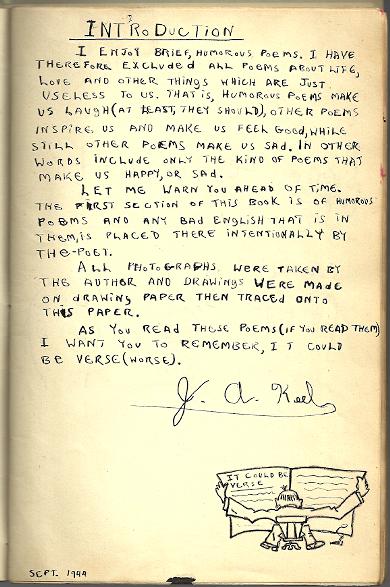 INTRODUCTION
I ENJOY BRIEF, HUMOROUS POEMS. I HAVE
THEREFORE EXCLUDED ALL POEMS ABOUT LIFE,
LOVE AND OTHER THINGS WHICH ARE JUST
USELESS TO US. THAT IS, HUMOROUS POEMS MAKE
US LAUGH (AT LEAST, THEY SHOULD), OTHER POEMS
INSPIRE US AND MAKE US FEEL GOOD, WHILE
STILL OTHER POEMS MAKE US SAD. IN OTHER
WORDS INCLUDE ONLY THE KIND OF POEMS THAT
MAKE US HAPPY, OR SAD.
LET ME WARN YOU AHEAD OF TIME.
THE FIRST SECTION OF THIS BOOK IS OF HUMOROUS
POEMS AND ANY BAD ENGLISH THAT IS IN
THEM, IS PLACED THERE INTENTIONALLY BY
THE-POET.
ALL PHOTOGRAPHS WERE TAKEN BY
THE AUTHOR AND DRAWINGS WERE MADE
ON DRAWING PAPER THEN TRACED ONTO
THIS PAPER.
AS YOU READ THESE POEMS (IF YOU READ THEM)
I WANT YOU TO REMEMBER, IT COULD
BE VERSE (WORSE).
J. A. Keel
IT COULD BE
VERSE
SEPT. 1944